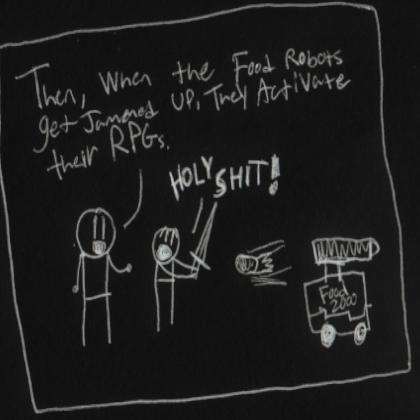 Then, When the Food Robots
get Jammed up, They Activate
their RPGs.
HOLY SHIT!
Food
2000